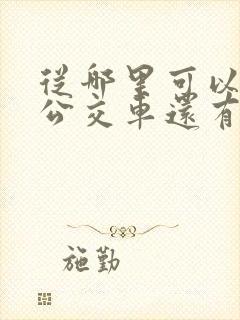 從哪里可以
公交車還有
施勤